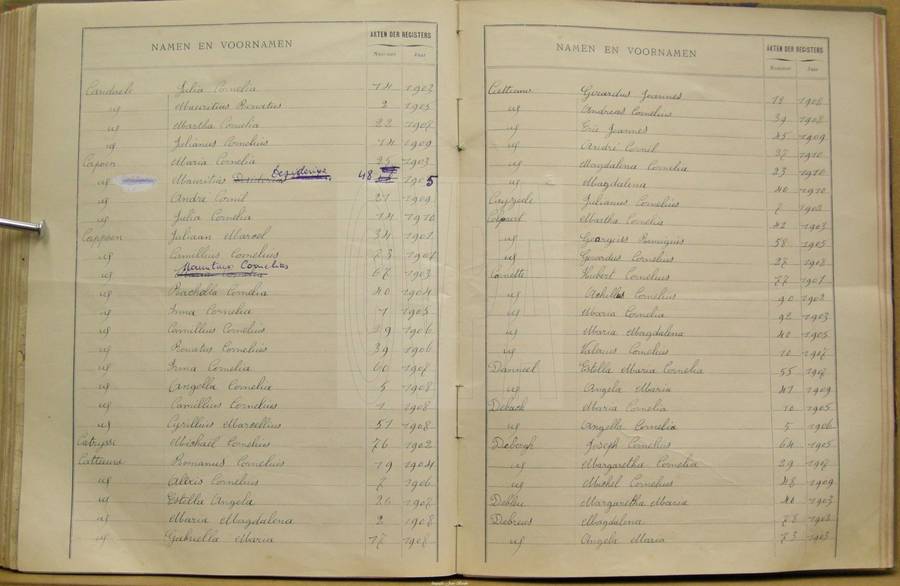 NAMEN EN VOORNAMEN AKTEN DER REGISTERS
Nummer Jaar
Julia Cornelia 14 1902
id Mauritius Renatus 2 1905
id Martha Cornelia 22 1907
id Julianus Cornelius 14 1909
Capoen Maria Cornelia 25 1903
id Mauritius Desiderius 48 1905
id André Cornil 21 1909
id Julia Cornelia 14 1910
Cappoen Juliaan Marcel 34 1901
id Camillius Cornelius 23
id Mauritius Cornelius 67 1903
id Rachella Cornelia 40 1904
id Irma Cornelia 1 1905
id Camillius Cornelius 29 1906
id Renatus Cornelius 39 1906
id Irma Cornelia 60 1907
id Angella Cornelia 5 1908
id Camillius Cornelius 1 1908
id Cyrillius Marcellius 51 1908
Catrysse Michael Cornelius 76 1902
Catteeuws Romanus Cornelius 19 1904
id Alexis Cornelius 8 1906
id Estella Angela 26 1907
id Maria Magdalena 2 1908
id Gabriella Maria 17 1908
NAMEN EN VOORNAMEN AKTEN DER REGISTERS
Nummer Jaar
Gerardus Joannes 12 1908
id Andreas Cornelius 39 1908
id Eric Joannes 45 1909
id André Cornel 27 1910
id Magdalena Cornelia 23 1910
id Magdalena 40 1910
Julianus Cornelius 1902
Martha Cornelia 42 1903
id Georgius Remigius 58 1905
id Gerardus Cornelius 27 1908
Cornette Hubert Cornelius 77 1901
id Achilles Cornelius 90 1902
id Maria Cornelia 92 1903
id Maria Magdalena 40 1905
id Valerius Cornelius 10 1907
Danneel Estella Maria Cornelia 55 1907
id Angela Maria 41 1909
Maria Cornelia 10 1905
id Angella Cornelia 5 1906
Deborgh Joseph Cornelius 64 1905
id Margaretha Cornelia 29 1907
id Michel Cornelius 48 1909
Margaretha Maria 40 1903
Debreus Magdalena 1902
id Angela Maria 73 1903